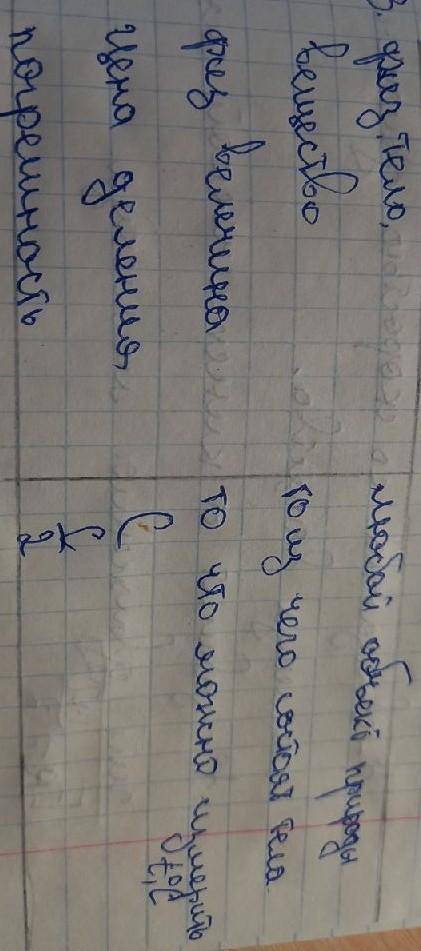 3. физ. тело, любой объект природы
вещество то из чего состоят тела
физ величина то что можно измерить
цена деления C
погрешность C/2